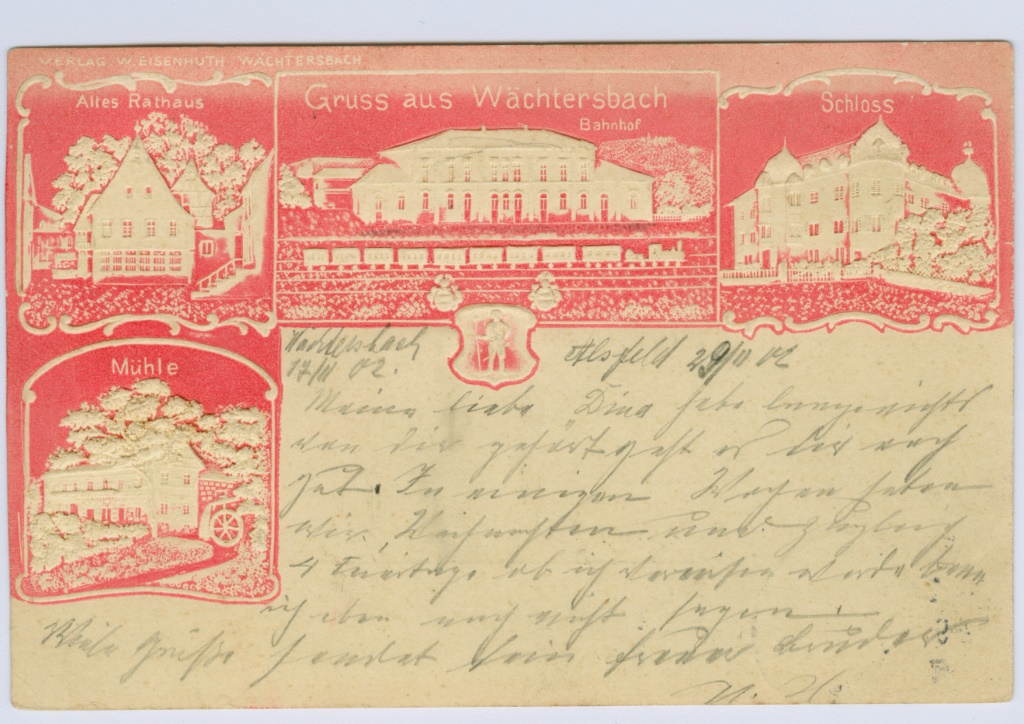 VERLAG W. EISENHUTH WÄCHTERSBACH
Altes Rathaus
Gruss aus Wächtersbach
Bahnhof
Schloss
Mühle
Wächtersbach
17/11 02.
Alsfeld 29/11 02
Meine liebe Dina habe lange nichts
von dir gehört geht es dir noch
gut. In einigen Wochen haben
wir Weihnachten und zugleich
4 Feiertage ob ich verreisen werde kann
ich eben noch nicht sagen.
Viele Grüße sendet dein treuer Bruder